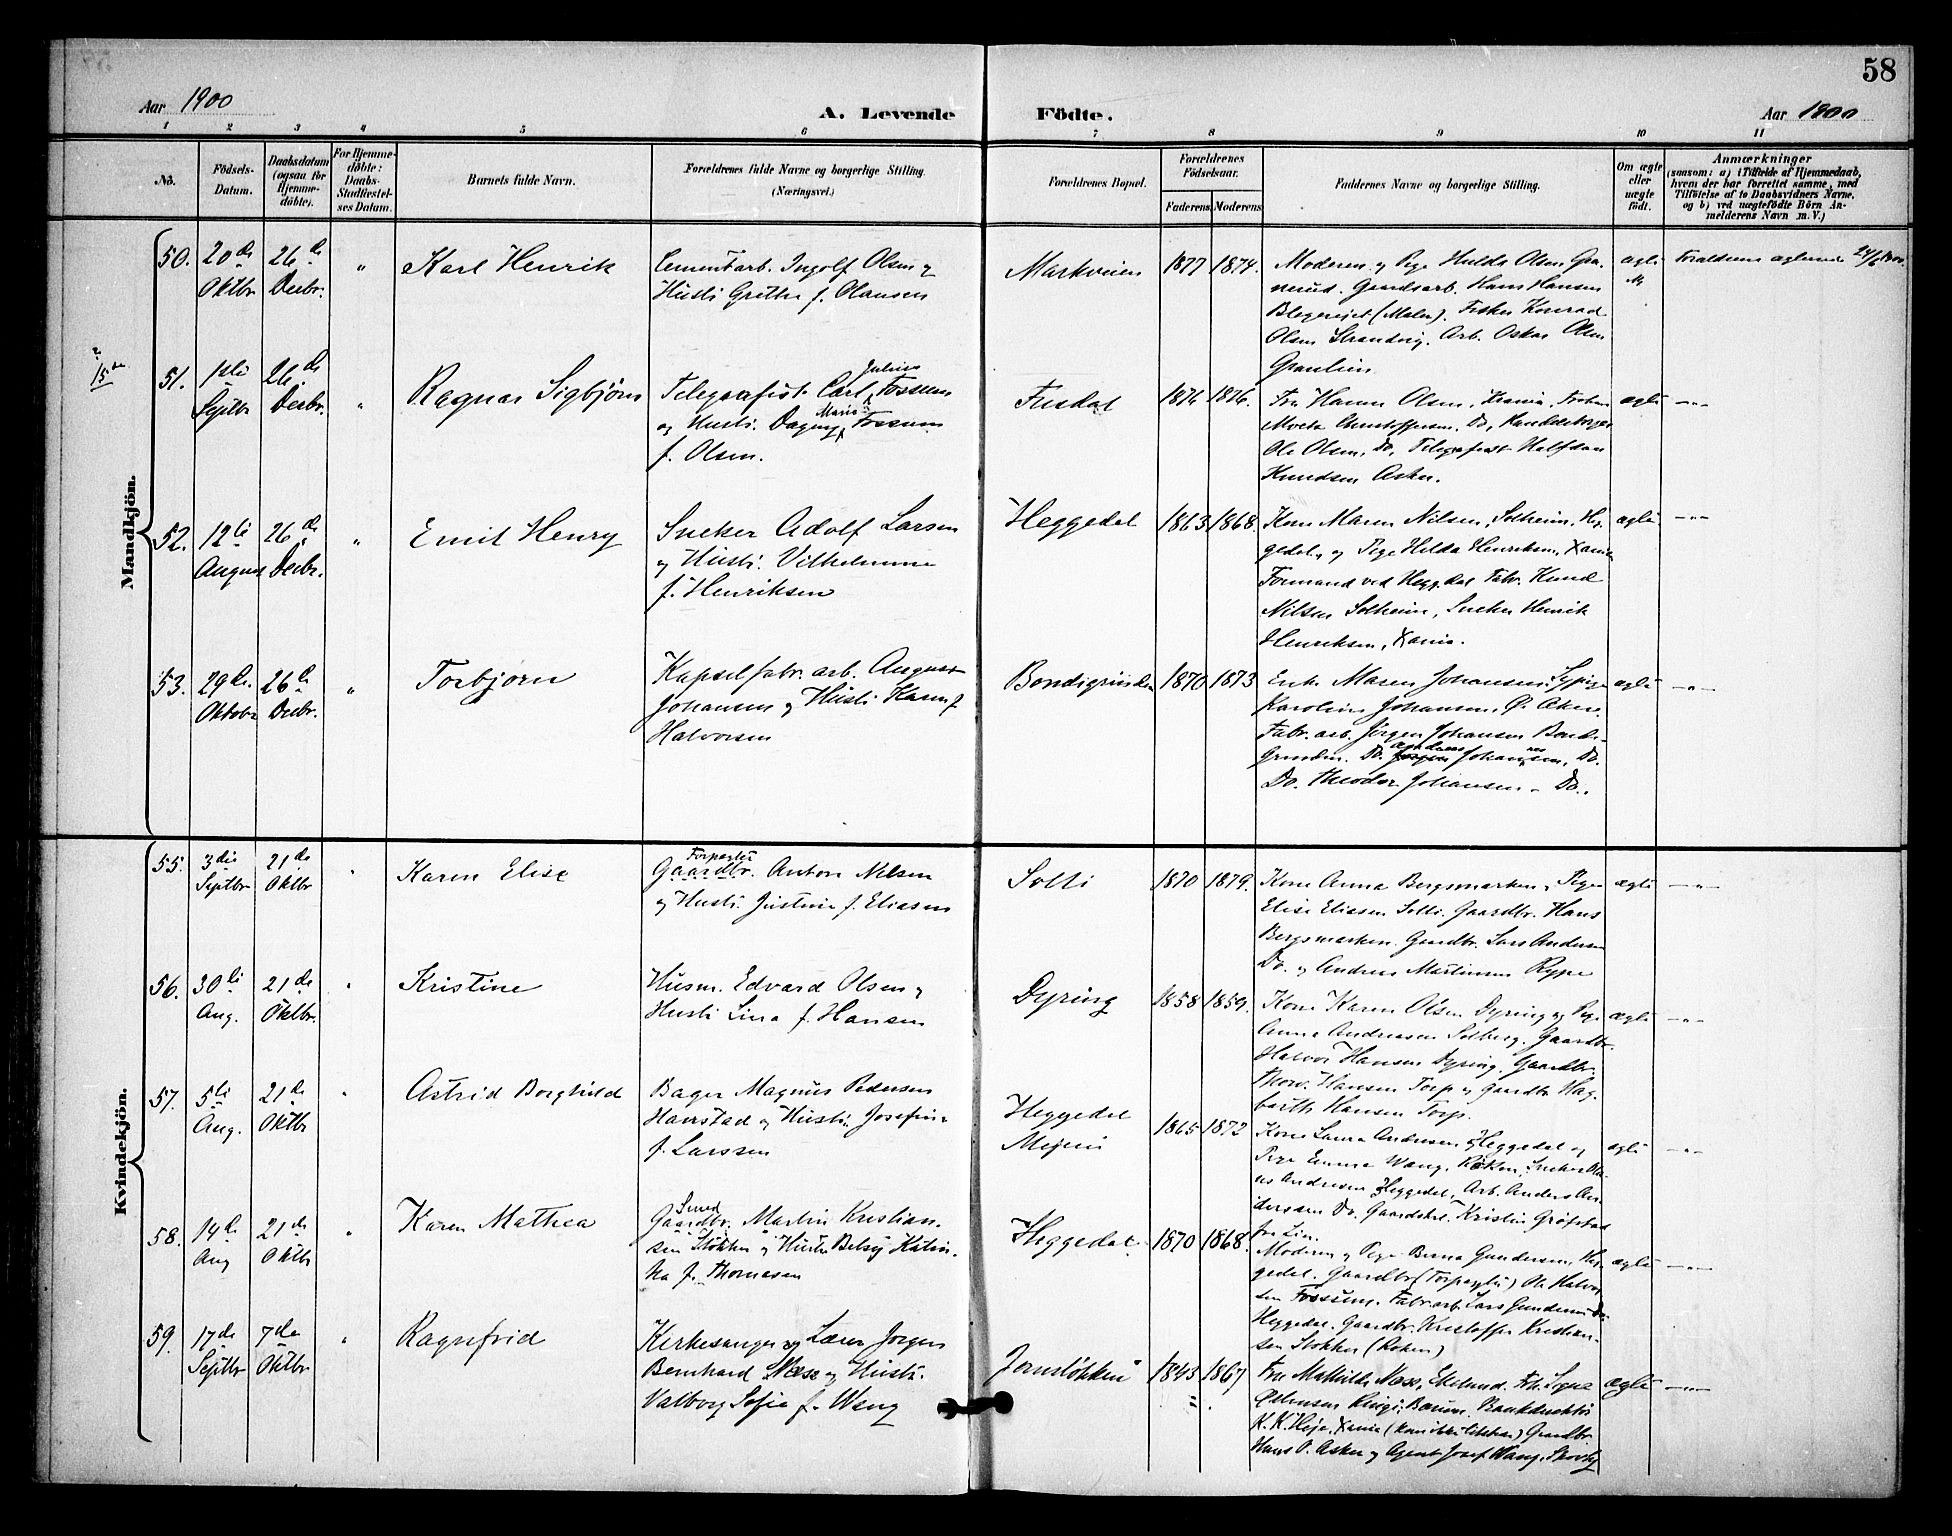 58
Aar 1900
A. Levende
Födte.
Aar 1900
1 2 3 4 5 6 7 8 9 10 11
No.
Födsels-
Datum.
Daabsdatum
(ogsaa for
Hjemme-
döbte).
For Hjemme-
döbte:
Daabs-
Stadfæstel-
ses Datum.
Barnets fulde Navn.
Forældrenes fulde Navne og borgerlige Stilling.
(Næringsvei.)
Forældrenes Bopæl.
Forældrenes
Födselsaar.
Faderens. Moderens.
Faddernes Navne og borgerlige Stilling.
Om ægte
eller
uægte
födt.
Anmærkninger
(saasom: a) i Tilfælde af Hjemmedaab,
hvem der har forrettet samme, med
Tilföielse af to Daabsvidners Navne,
og b) ved uægtefödte Börn An-
melderens Navn m. V.)
Mandkjön.
50.
20de
Oktbr
26de
Decbr.
"
Karl Henrik
Cementarb. Ingolf Olsen og
Hustr. Grethe f. Olausen
Markveien
1877
1874.
Moderen og Pige Hulda Olsen Gra-
nerud. Gaardsarb. Hans Hansen
(Maler). Fisker Konrad
Olsen Strandvig. Arb. Oskar Olsen
Graulien
ægte
51.
? 15de
1ste
Septbr
26de
Decbr.
"
Ragnar Sigbjørn
Telegrafist Carl Julius Fossum
og Hustr. Dagny Maria Fossum
f. Olsen.
Fusdal
1874
1876.
Fru Hanna Olsen, Krania,
Christoffersen, Do,
Ole Olsen, Do, Telegrafist Halfdan
Knudsen Asker.
ægte
— " —
52.
12te
August
26de
Decbr.
"
Emil Henry
Sneker Adolf Larsen
og Hustr. Vilhelmine
f. Henriksen
Heggedal
1863
1868.
Kone Maren Nilsen, Solheim, Heg-
gedal, og Pige Hilda Henriksen, Xania
Formand ved Heggedal Fabr. Knud
Nilsen Solheim, Sneker Henrik
Henriksen, Xania.
ægte
— " —
53.
29de
Oktobr
26de
Decbr.
"
Torbjørn
Kapselfabr. arb. August
Johansen og Hustr. Hanna f.
Halvorsen
Bondigrunden
1870
1873
Enke Maren Johansen, Sypige
Karoline Johansen, Ø. Aker.
Fabr. arb. Jørgen Johansen Bondi-
grunden. Do. Andreas Johannesen, Do.
Do. Theodor Johansen - Do.
ægte
— " —
Kvindekjön.
55.
3die
Septbr
21de
Oktbr
"
Karen Elise
Forpagter
Gaardbr. Anton Nilsen
og Hustr. Justine f. Eliasen
Solli
1870
1879.
Kone Anna Bergsmarken, Pige
Elise Eliasen Solli. Gaardbr. Hans
Bergsmarken. Gaardbr. Lars Andersen
Do. og Andreas Martinsen Rype
ægte
— " —
56.
30te
Aug.
21de
Oktbr.
"
Kristine
Husm. Edvard Olsen og
Hustr. Lina f. Hansen
Dyring
1858
1859.
Kone Karen Olsen Dyring og Pige
Anna Andreasen Solberg. Gaardbr.
Halvor Hansen Dyring. Gaardbr.
Thorv. Hansen Torp og Gaardbr. Hag-
barth Hansen Torp.
ægte
— " —
57.
5te
Aug.
21de
Oktbr
"
Astrid Borghild
Bager Magnus Pedersen
Haurstad og Hustr. Josefine
f. Larssen
Heggedal
Mejeri
1865
1872
Kone Laura Andresen, Heggedal og
Pige Emma Wang, Røken, Sneker
Andresen Heggedal, Arb. Anders An-
derssen Do. Kristin Grøfstad
fra Lier.
ægte
— " —
58.
14de
Aug
21de
Oktbr
"
Karen Mathea
Smed
Gaardbr. Martin Kristian-
sen Stokker og Hustr. Betsy Katri-
na f. Thomasen
Heggedal
1870
1868.
Moderen og Pige Berna Gundersen, Heg-
gedal. Gaardbr. (Forpagter) Ole Halvor-
sen Fossum. Fabr. arb. Lars Gundersen Do.
Heggedal. Gaardbr. Kristoffer Kristian-
sen Stokker (Røken)
ægte
— " —
59.
17de
Septbr
7de
Oktbr
"
Ragnfrid
Kirkesanger og Lærer Jørgen
Bernhard Næss og Hustr.
Valborg Sofie f. Wang
Jansløkken
1843
1867
Fru Mathilde Næss, Ekelund. Frk. Signe
Ringi, Bærum. Bankdirektør
K. K. Heje, Xania Gaardbr.
Hans O. Asker og Agent Josef Wang,
ægte
— " —